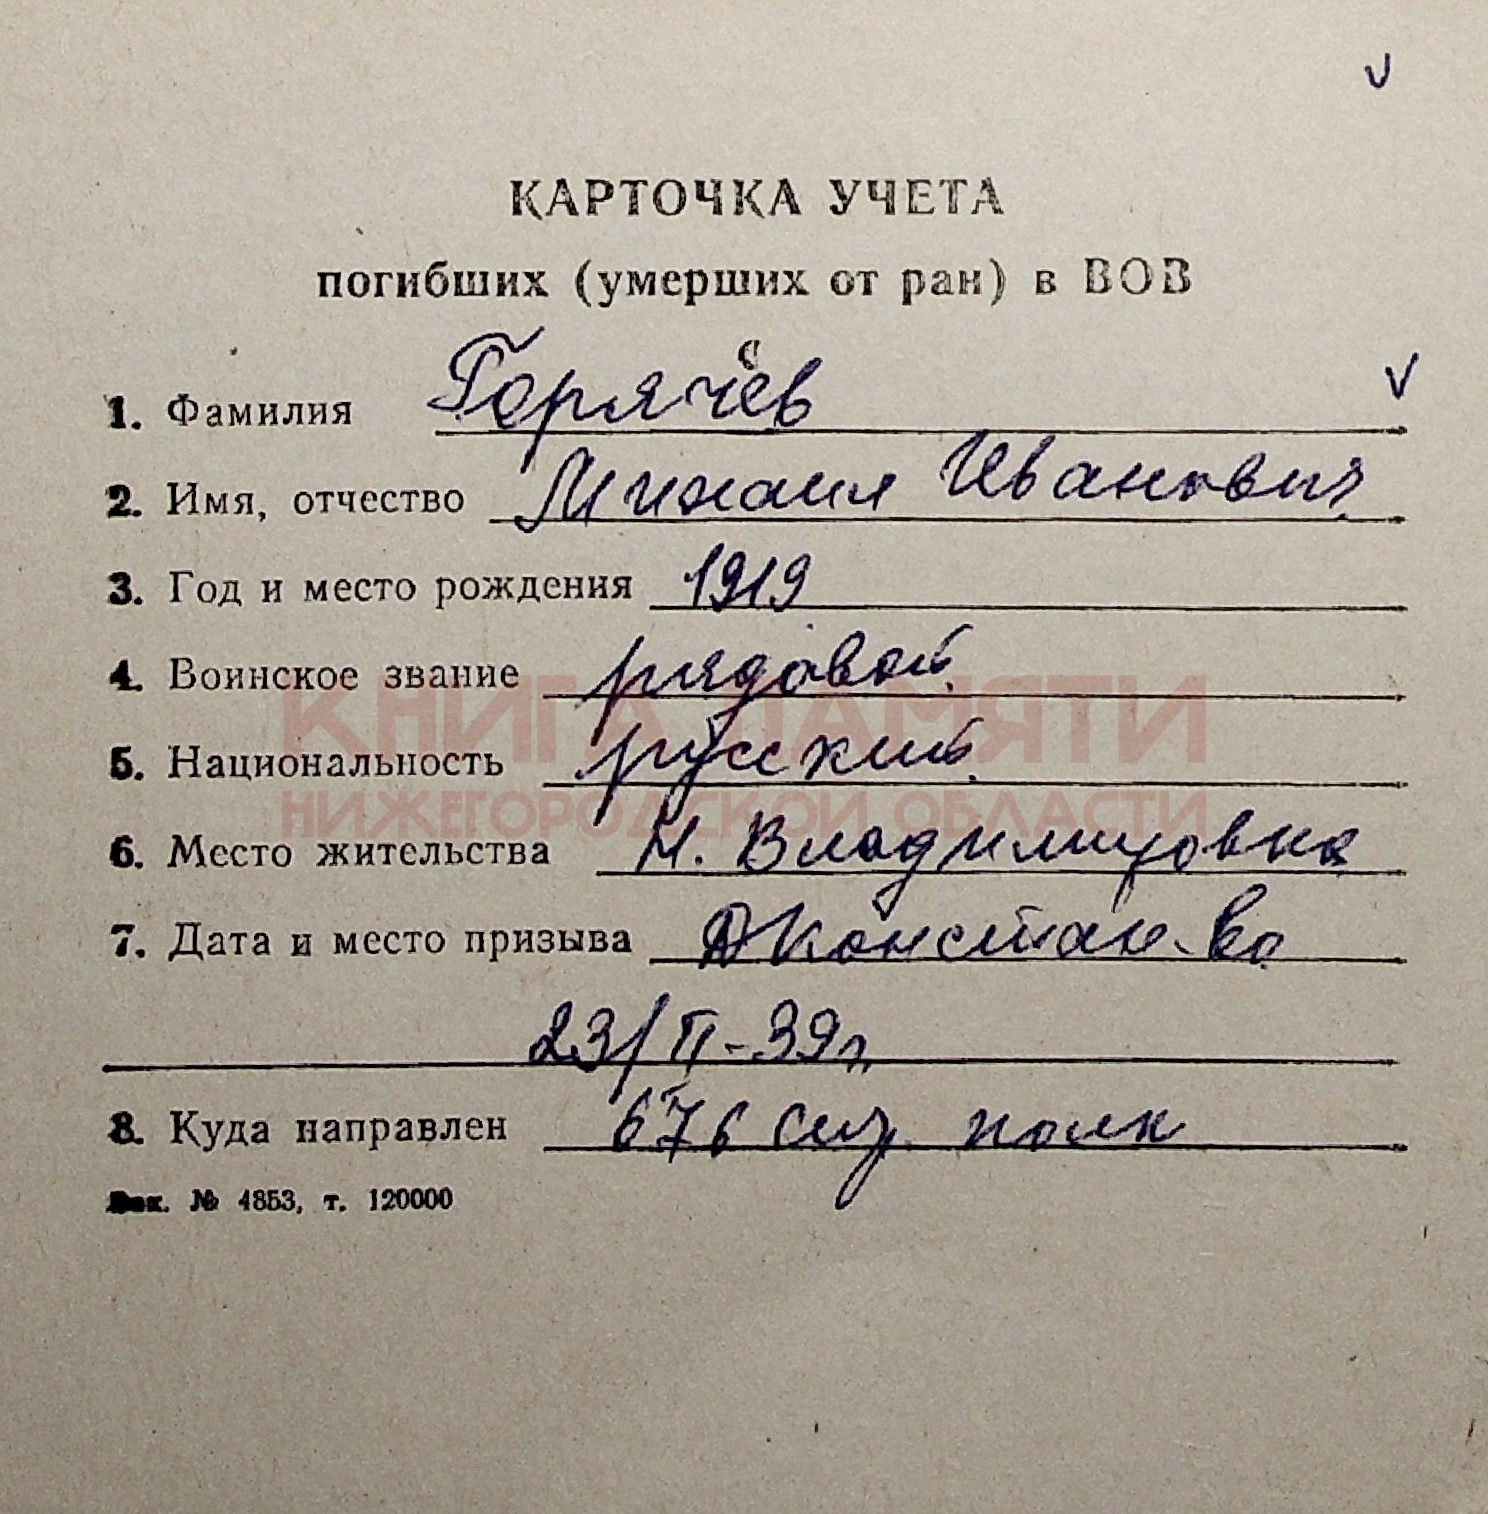 КАРТОЧКА УЧЕТА
погибших (умерших от ран) в ВОВ
1. Фамилия Горячев
2. Имя, отчество Михаил Иванович
3. Год и место рождения 1919
4. Воинское звание рядовой
КНИГА ПАМЯТИ
5. Национальность русский
НИЖЕГОРОДСКОЙ ОБЛАСТИ
6. Место жительства Н. Владимировка
7. Дата и место призыва Д Констан-во
23/II-39г
8. Куда направлен 676 полк
Зак. № 4853, т. 120000